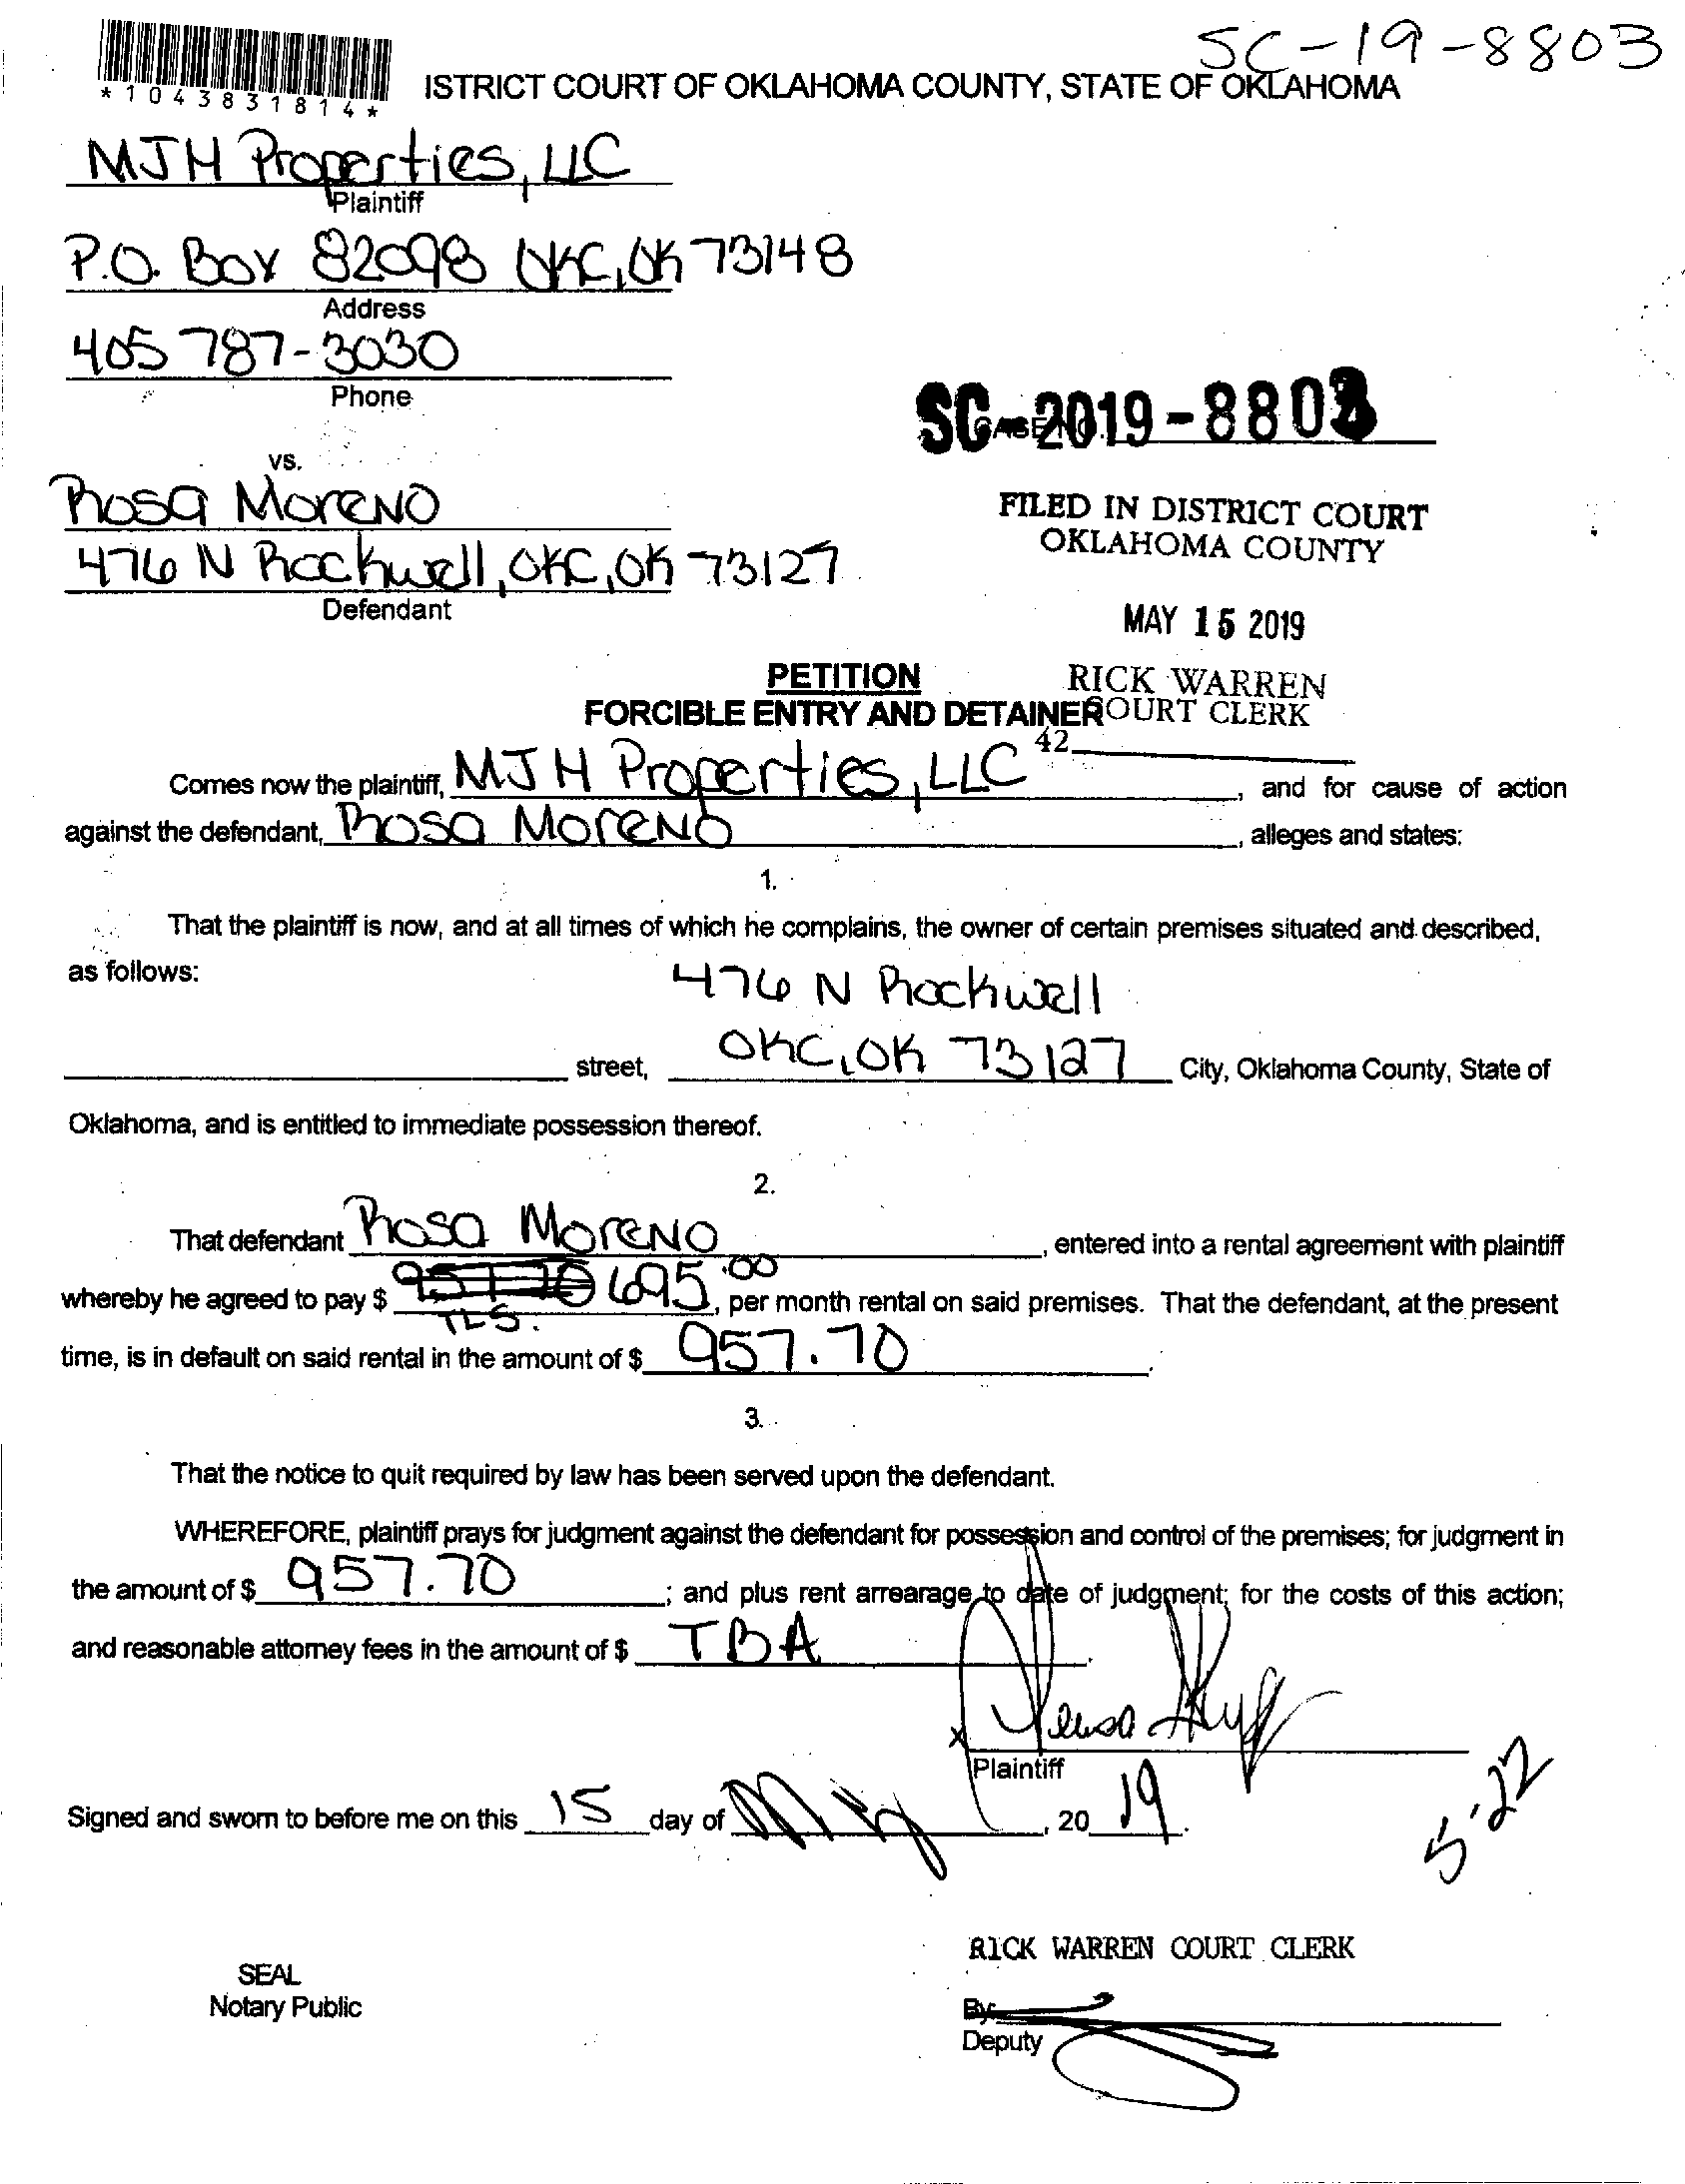 SC-19-8803
*1043831814*
ISTRICT COURT OF OKLAHOMA COUNTY, STATE OF OKLAHOMA
MJH Properties, LLC
Plaintiff
P.O. Box 82098 OKC, OK 73148
Address
405 787-3030
Phone
SC-2019-8803
vs.
Rosa Moreno
FILED IN DISTRICT COURT
OKLAHOMA COUNTY
476 N Rockwell, OKC, OK 73127
Defendant
MAY 15 2019
PETITION
RICK WARREN
FORCIBLE ENTRY AND DETAINER
COURT CLERK
42
Comes now the plaintiff, MJH Properties, LLC, and for cause of action
against the defendant, Rosa Moreno, alleges and states:
1.
That the plaintiff is now, and at all times of which he complains, the owner of certain premises situated and described,
as follows:
476 N Rockwell
street, OKC, OK 73127 City, Oklahoma County, State of
Oklahoma, and is entitled to immediate possession thereof.
2.
That defendant Rosa Moreno, entered into a rental agreement with plaintiff
whereby he agreed to pay $ 695.00, per month rental on said premises. That the defendant, at the present
TLS.
time, is in default on said rental in the amount of $ 957.70.
3.
That the notice to quit required by law has been served upon the defendant.
WHEREFORE, plaintiff prays for judgment against the defendant for possession and control of the premises; for judgment in
the amount of $ 957.70; and plus rent arrearage to date of judgment; for the costs of this action;
and reasonable attorney fees in the amount of $ TBA.
Plaintiff
Signed and sworn to before me on this 15 day of May, 2019.
5-22
RICK WARREN COURT CLERK
SEAL
Notary Public
By:
Deputy